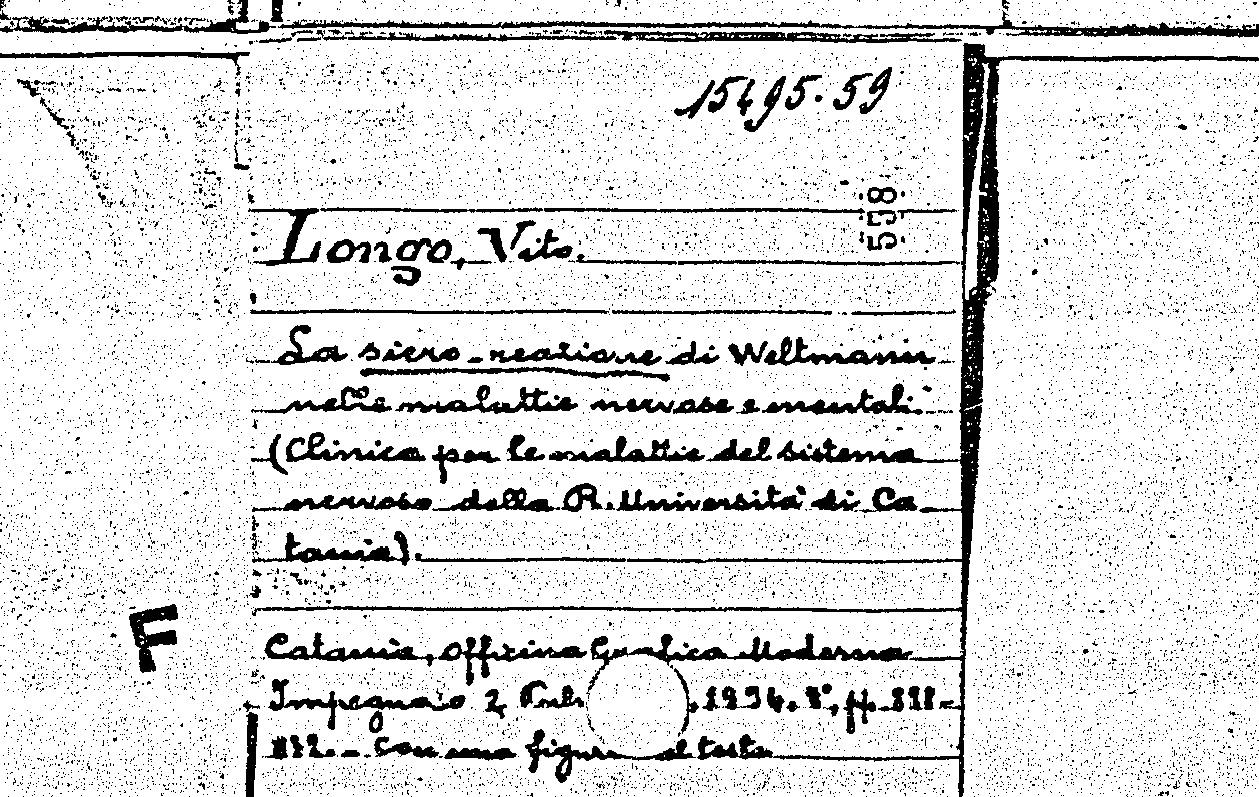 15495.59
558
Longo, Vito.
La siero-reazione di Weltmann
nelle malattie nervose e mentali.
(Clinica per le malattie del sistema
nervoso della R. Università di Ca-
tania).
Catania, Officina Grafica Moderna
Impegnato 2,
1934. 8°, pp.
con una figura nel testo